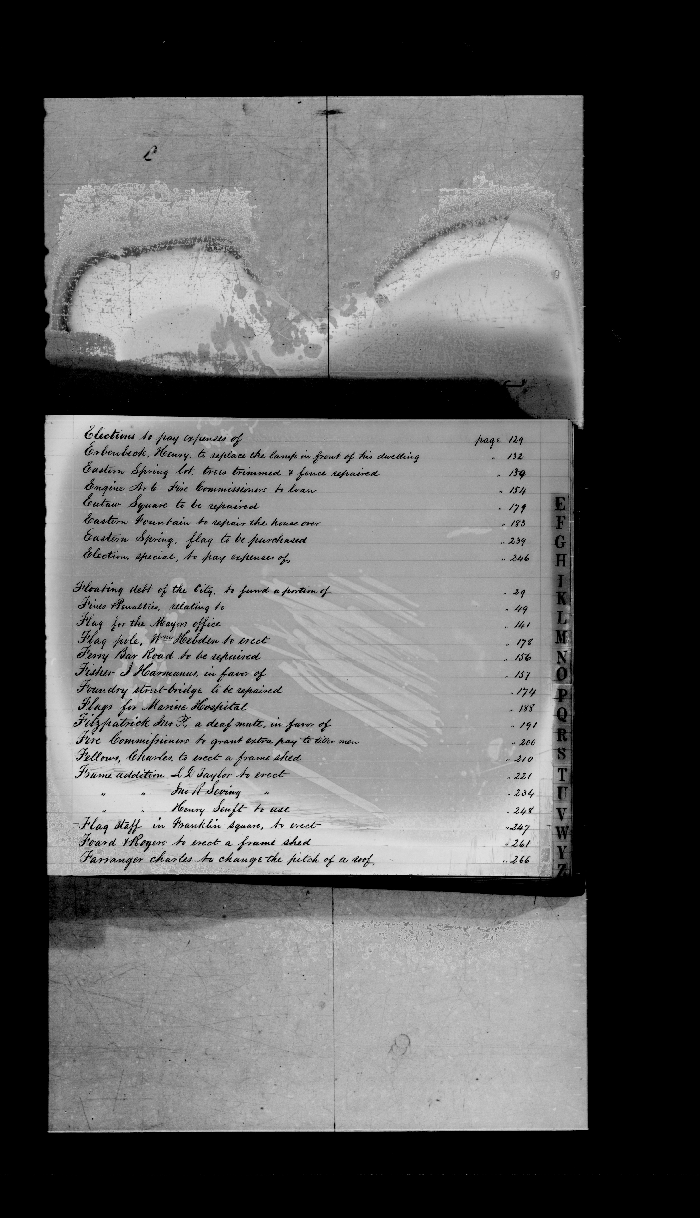 Elections to pay expenses of page 129
Erbenbeck, Henry, to replace the lamp in front of his dwelling " 132
Eastern Spring lot, trees trimmed & fence repaired " 139
Engine No 6 Fire Commissioners to loan " 154
Eutaw Square to be repaired " 179
Eastern Fountain to repair the house over " 183
Eastern Spring, flag to be purchased " 239
Election, special, to pay expenses of, " 246
Floating debt of the City, to fund a portion of " 29
Fines & Penalties, relating to " 49
Flag for the Mayors office " 141
Flag pole, Wm Hebden to erect " 178
Ferry Bar Road to be repaired " 156
Fisher J Harmanus, in favor of " 157
Foundry street-bridge to be repaired " 174
Flags for Marine Hospital " 188
Fitzpatrick Jno F, a deaf mute, in favor of " 191
Fire Commissioners to grant extra pay to their men " 206
Fellows, Charles to erect a frame shed " 210
Frame addition Taylor to erect " 221
" " Jno A " " 234
" " Henry Senft to use " 248
Flag Staff in Franklin square, to erect " 247
Foard & Rogers to erect a frame shed " 261
Farranger charles to change the pitch of a roof, " 266
E
F
G
H
I
K
L
M
N
O
P
Q
R
S
T
U
V
W
Y
Z